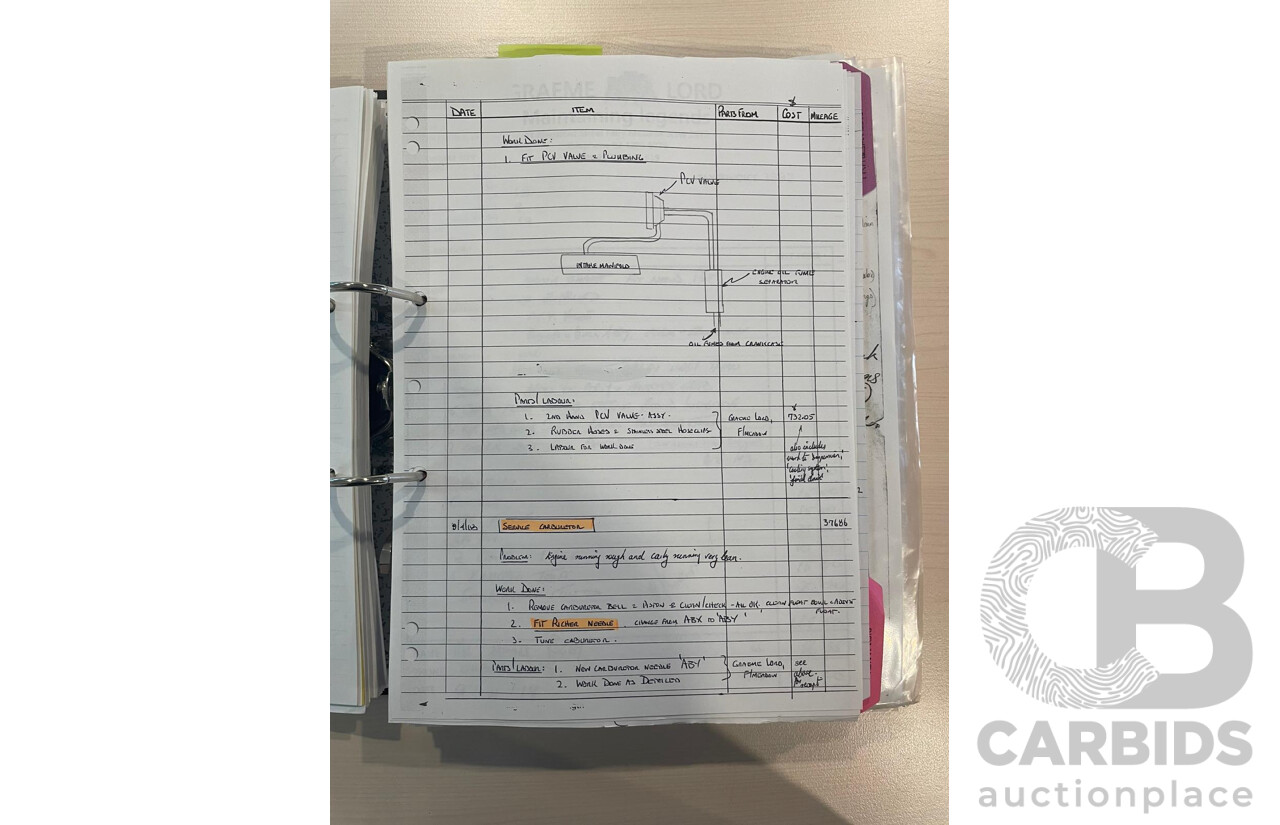 GRAEME LORD
DATE ITEM PARTS FROM COST MILEAGE
WORK DONE:
1. FIT PCV VALVE & PLUMBING
PCV VALVE
INTAKE MANIFOLD
ENGINE OIL FUME
SEPARATOR
OIL FUMES FROM CRANKCASE
PARTS/LABOUR:
1. 2ND HAND PCV VALVE - ASSY. GRAEME LORD, 732.05
2. RUBBER HOSES & STAINLESS STEEL HOSECLIPS
3. LABOUR FOR WORK DONE
also includes
SERVICE CARBURETOR 37686
PROBLEM: Engine running rough and early running very lean.
WORK DONE:
1. REMOVE CARBURETOR BELL & PISTON & CLEAN/CHECK - ALL OK.
2. FIT RICHER NEEDLE. CHANGE FROM ABX TO 'ABY'
3. TUNE CARBURETOR.
PARTS/LABOUR: 1. NEW CARBURETOR NEEDLE 'ABY' GRAEME LORD, see
2. WORK DONE AS DETAILED above
CB
CARBIDS
auctionplace